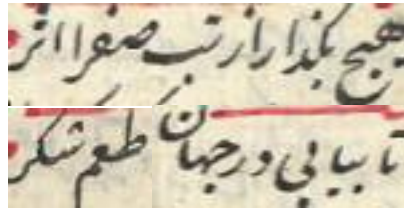 هیچ بگذار از تب صفرا اثر
تا بیابی در جهان طعم شکر